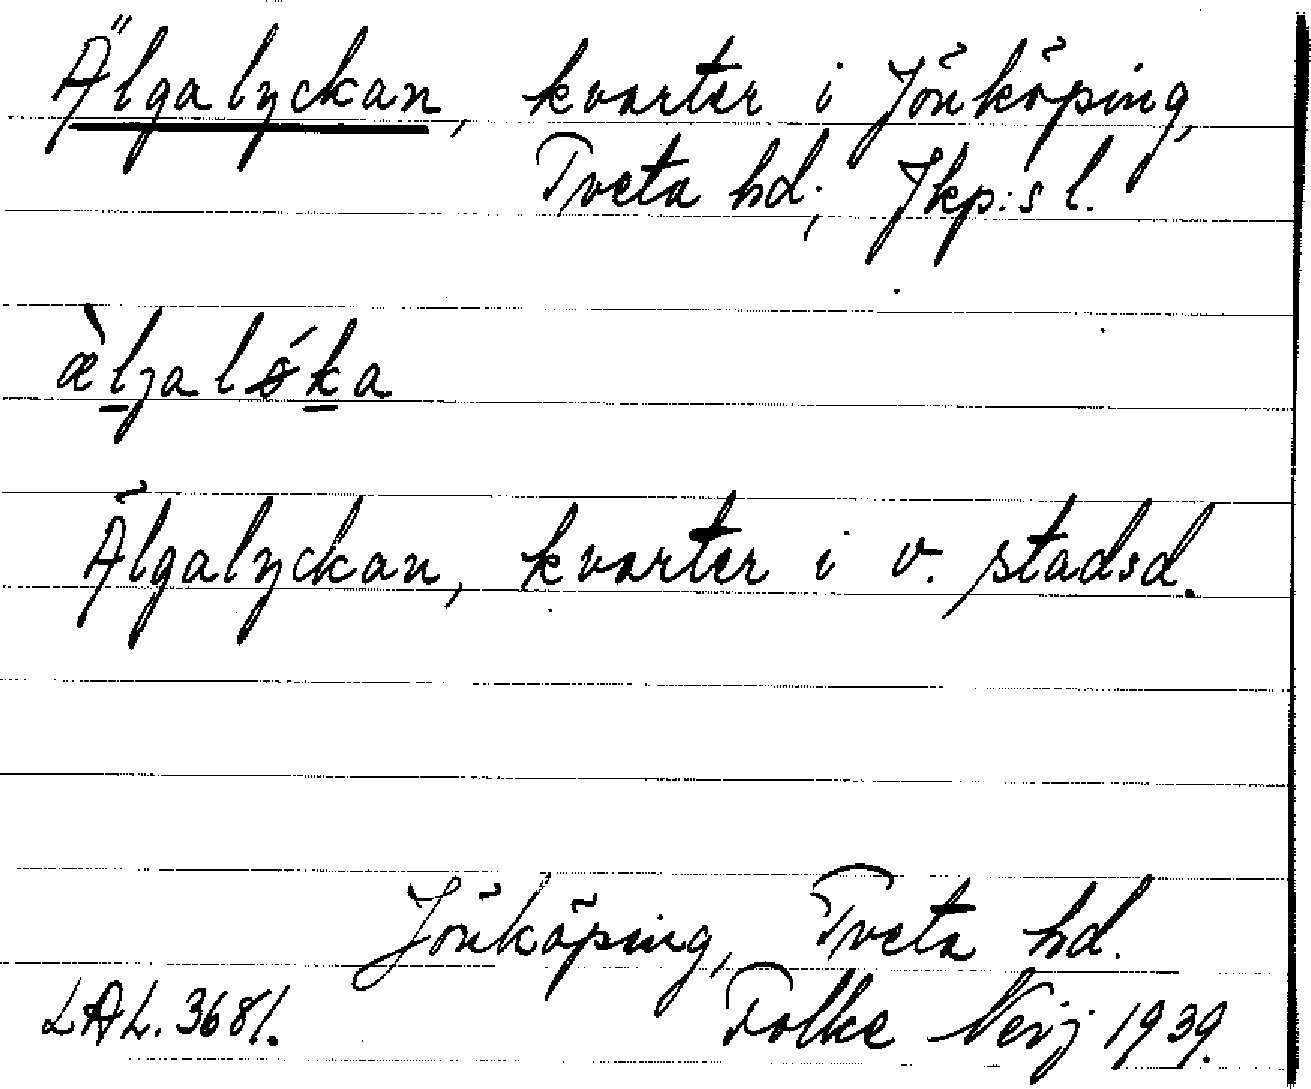 Älgalyckan, kvarter i Jönköping,
Tveta hd; Jkp:s l.
æ̀ljalǿka
Älgalyckan, kvarter i v. stadsd.
Jönköping, Tveta hd.
LAL. 3681. Folke Neij 1939.